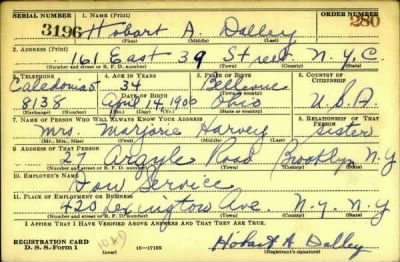 SERIAL NUMBER 1. NAME (Print) ORDER NUMBER
3196 Hobart A. Dalley 280
(First) (Middle) (Last)
2. ADDRESS (Print)
161 East 39 Street N.Y.C.
(Number and street or R. F. D. number) (Town) (County) (State)
3. TELEPHONE 4. AGE IN YEARS 5. PLACE OF BIRTH 6. COUNTRY OF CITIZENSHIP
Caledonia 5 34 Bellevue
DATE OF BIRTH (Town or county)
8138 April 14 1906 Ohio U.S.A.
(Exchange) (Number) (Mo.) (Day) (Yr.) (State or country)
7. NAME OF PERSON WHO WILL ALWAYS KNOW YOUR ADDRESS 8. RELATIONSHIP OF THAT PERSON
Mrs. Marjorie Harvey Sister
(Mr., Mrs., Miss) (First) (Middle) (Last)
9. ADDRESS OF THAT PERSON
27 Argyle Road Brooklyn N.Y
(Number and street or R. F. D. number) (Town) (County) (State)
10. EMPLOYER'S NAME
Service
11. PLACE OF EMPLOYMENT OR BUSINESS
420 Lexington Ave. N.Y. N.Y
(Number and street or R. F. D. number) (Town) (County) (State)
I AFFIRM THAT I HAVE VERIFIED ABOVE ANSWERS AND THAT THEY ARE TRUE.
REGISTRATION CARD
D. S. S. Form 1 (over) 16—17105 Hobart A Dalley
(Registrant's signature)